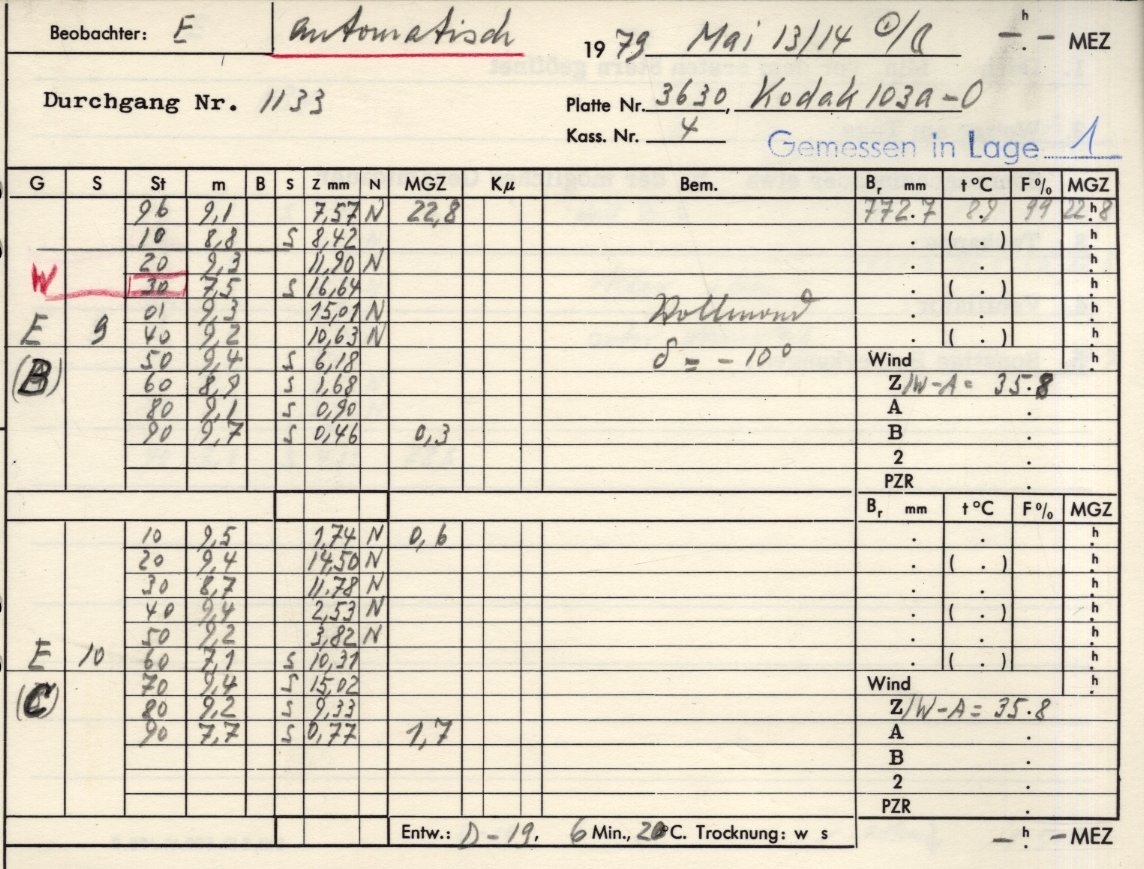 Beobachter: E automatisch 1979 Mai 13/14 ☉/☾ — h. — MEZ
Durchgang Nr. 1133 Platte Nr. 3630, Kodak 103a-O
Kass. Nr. 4 Gemessen in Lage 1
G S St m B S Z mm N MGZ Kμ Bem. Br mm t °C F % MGZ
96 9,1 7,57 N 22,8 772.7 8.9 99 22h8
10 8,8 S 8,42 . ( . ) h.
20 9,3 11,90 N . . h.
W 30 7,5 S 16,64 . ( . ) h.
01 9,3 15,01 N Vollmond . . h.
E 9 40 9,2 10,63 N . ( . ) h.
(B) 50 9,4 S 6,18 δ = -10° Wind h.
60 8,9 S 1,68 Z/W-A = 35.8
80 9,1 S 0,90 A .
90 9,7 S 0,46 0,3 B .
2 .
PZR .
Br mm t °C F % MGZ
10 9,5 1,74 N 0,6 . . h.
20 9,4 14,50 N . ( . ) h.
30 8,7 11,78 N . . h.
40 9,4 2,53 N . ( . ) h.
50 9,2 3,82 N . . h.
E 10 60 7,1 S 10,31 . ( . ) h.
(C) 70 9,4 S 15,02 Wind h.
80 9,2 S 9,33 Z/W-A = 35.8
90 7,7 S 0,77 1,7 A .
B .
2 .
PZR .
Entw.: D-19, 6 Min., 20°C. Trocknung: w s — h. — MEZ